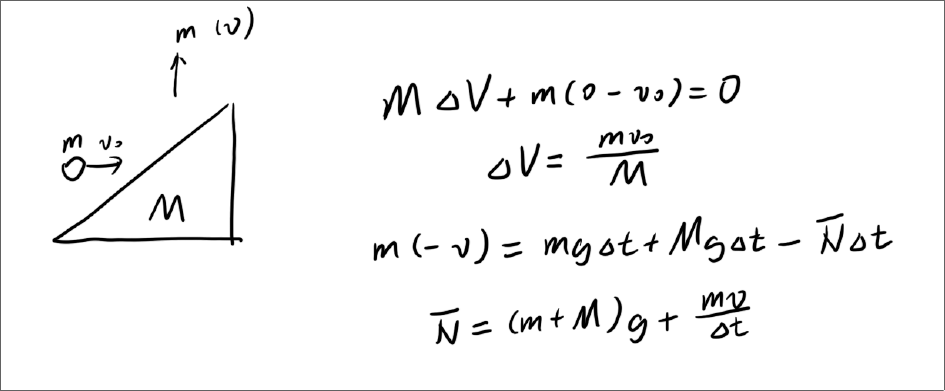 m (v)
m v₀
M
M ΔV + m(0 - v₀) = 0
ΔV = mv₀/M
m(-v) = mgΔt + MgΔt - N̅Δt
N̅ = (m+M)g + mv/Δt